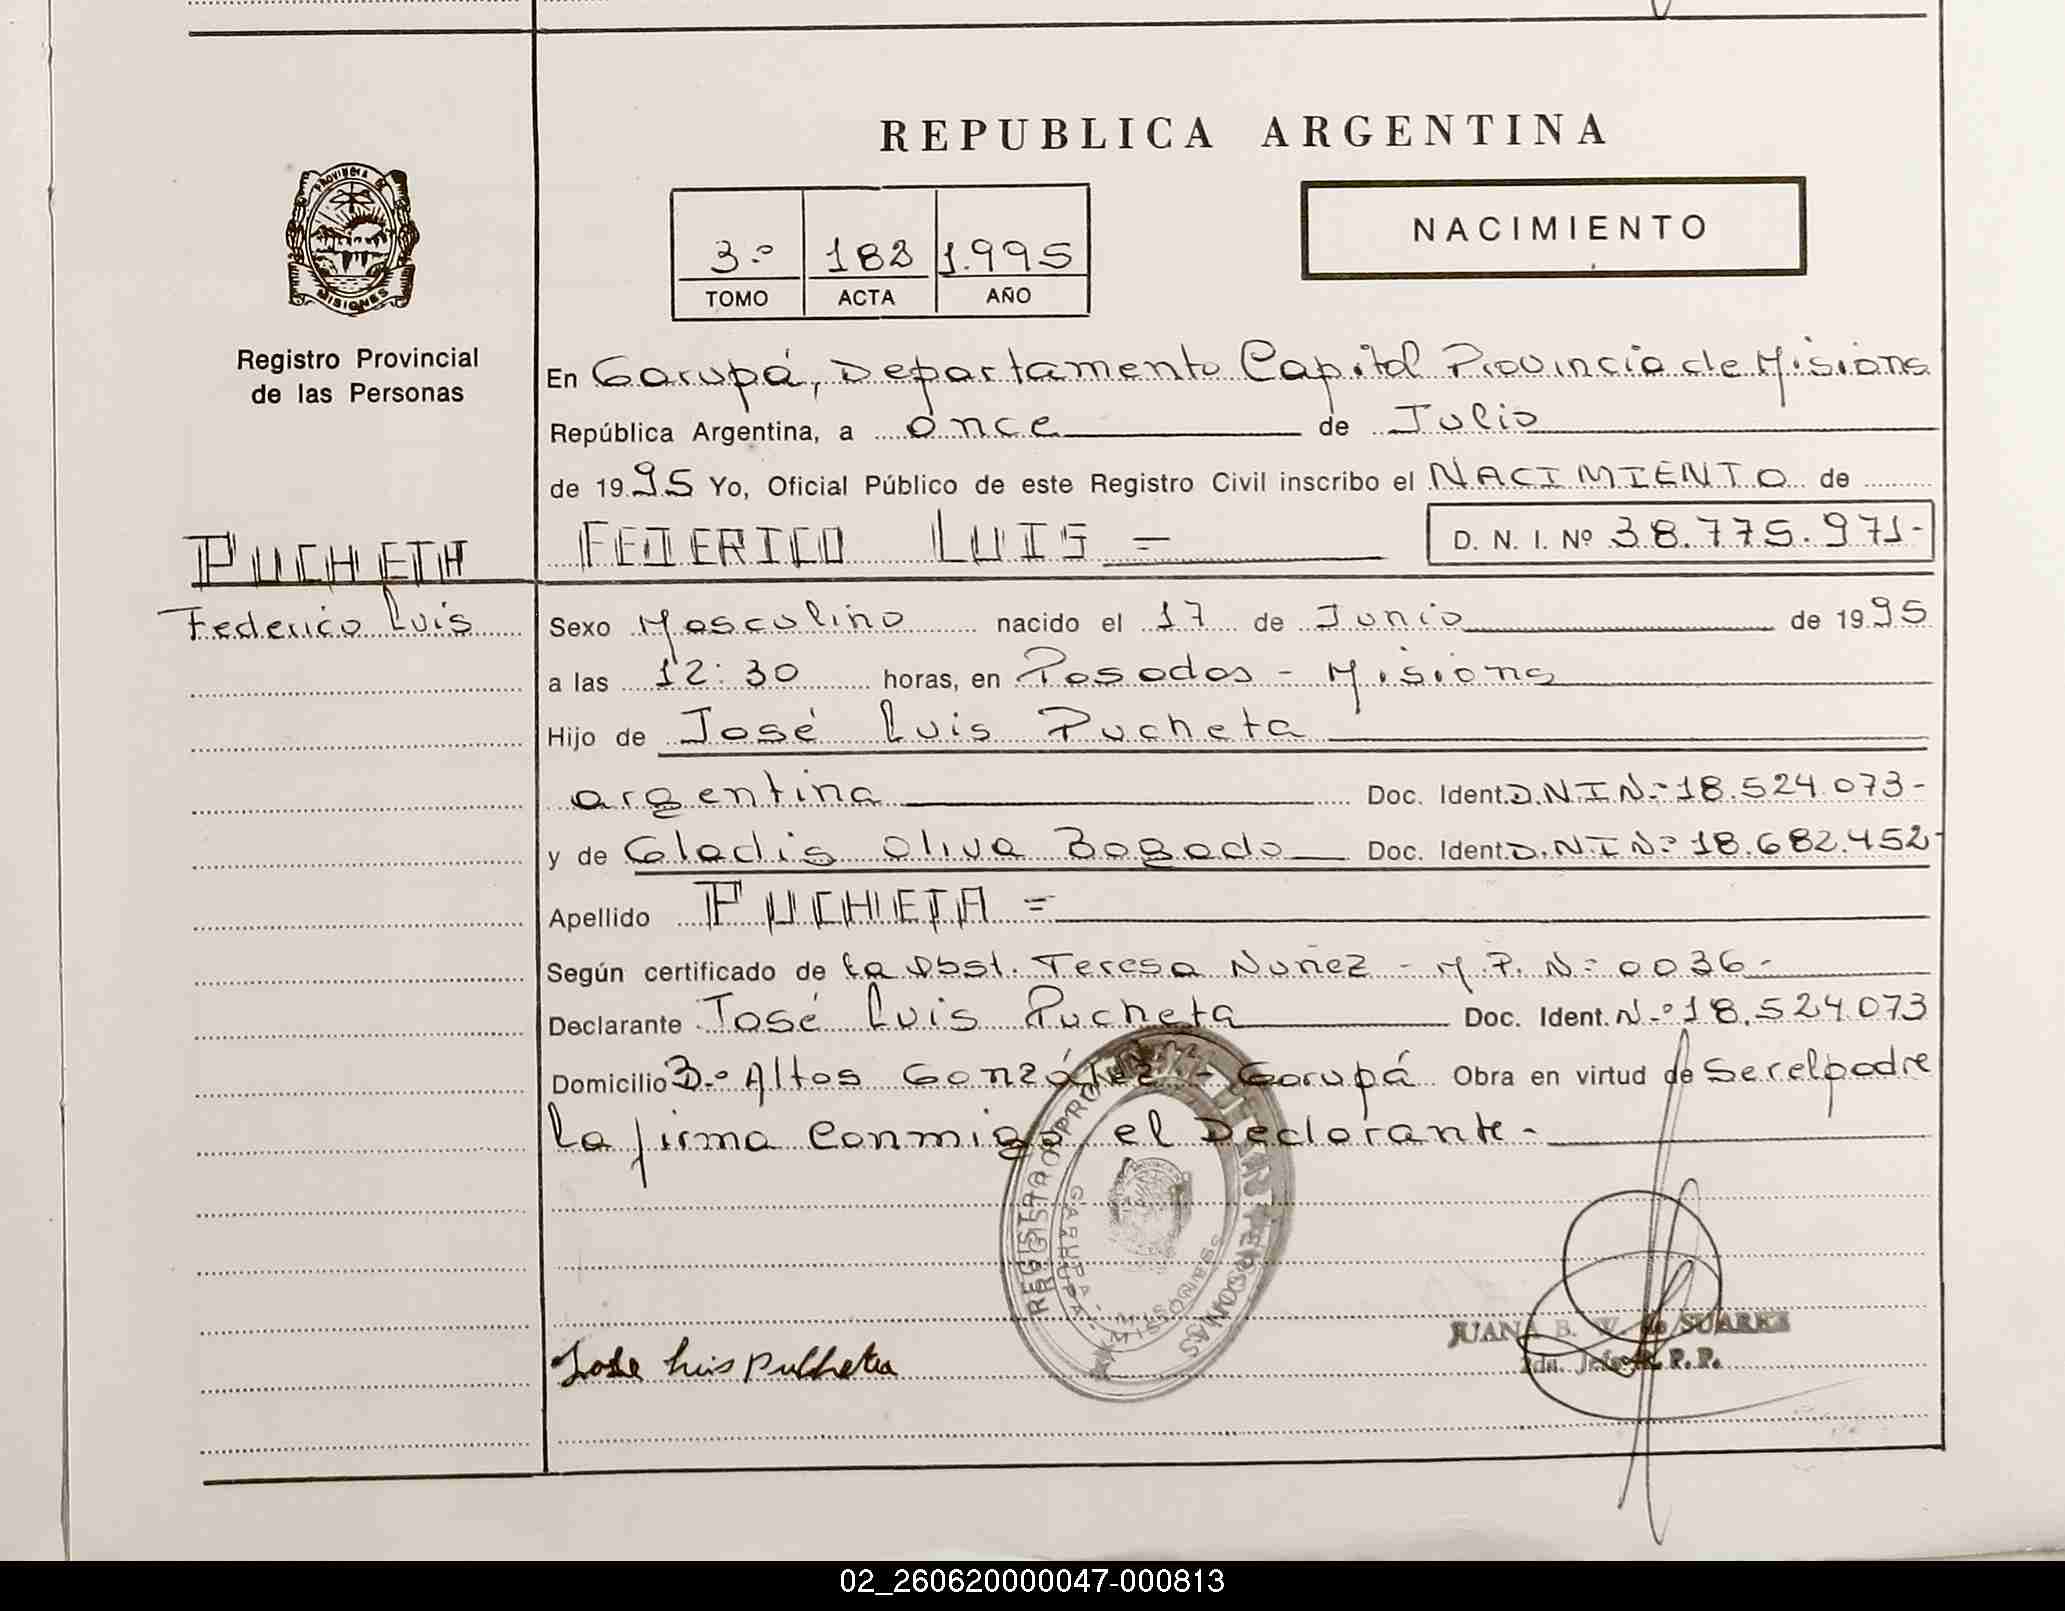 REPUBLICA ARGENTINA
PROVINCIA DE
MISIONES
Registro Provincial
de las Personas
3.º 182 1.995
TOMO ACTA AÑO
NACIMIENTO
En Garupá, Departamento Capital Provincia de Misiones
República Argentina, a once de Julio
de 1995 Yo, Oficial Público de este Registro Civil inscribo el NACIMIENTO de
PUCHETA FEDERICO LUIS = D. N. I. Nº 38.775.971-
Federico Luis Sexo Masculino nacido el 17 de Junio de 1995
a las 12:30 horas, en Posadas - Misiones
Hijo de José Luis Pucheta
argentina Doc. Ident. D.N.I N.º 18.524.073-
y de Gladis Oliva Bogado Doc. Ident. D.N.I N.º 18.682.452-
Apellido PUCHETA =
Según certificado de la Obst. Teresa Nuñez - M.P. N.º 0036-
Declarante José Luis Pucheta Doc. Ident. N.º 18.524.073
Domicilio B.º Altos González - Garupá Obra en virtud de Ser el padre
La firma conmigo el Declarante-
REGISTRO PERSONAS
GARUPA - MISIONES
JUANA B. W. de SUAREZ
Jose Luis Pucheta
R. P. P.
02_260620000047-000813